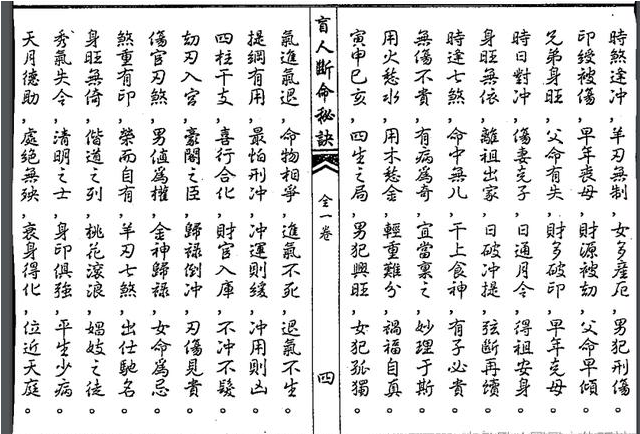 時煞逢冲，羊刃無制，女多產厄，男犯刑傷。
印綬被傷，早年喪母，財源被刼，父命早傾。
兄弟身旺，父命有失，財多破印，早年尅母。
時日對冲，傷妻尅子，日通月令，得祖安身。
身旺無依，離祖出家，日破冲提，弦斷再續。
時逢七煞，命中無儿，干上食神，有子必貴。
無傷不貴，有病為奇，宜當禀之，妙理于斯。
用火愁水，用木愁金，輕重難分，禍福自真。
寅申巳亥，四生之局，男犯興旺，女犯孤獨。
盲人斷命秘訣
全一卷
四
氣進氣退，命物相爭，進氣不死，退氣不生。
提綱有用，最怕刑冲，冲運則緩，冲用則凶。
四柱干支，喜行合化，財官入庫，不冲不發。
刼刃入宮，豪閣之臣，歸祿倒冲，刃傷見貴。
傷官刃煞，男值為權，金神歸祿，女命為忌。
煞重有印，榮而自有，羊刃七煞，出仕馳名。
身旺無倚，偕道之列，桃花滚浪，娼妓之徒。
秀氣失令，清明之士，身印俱強，平生少病。
天月德助，處絕無殃，衰身得化，位近天庭。